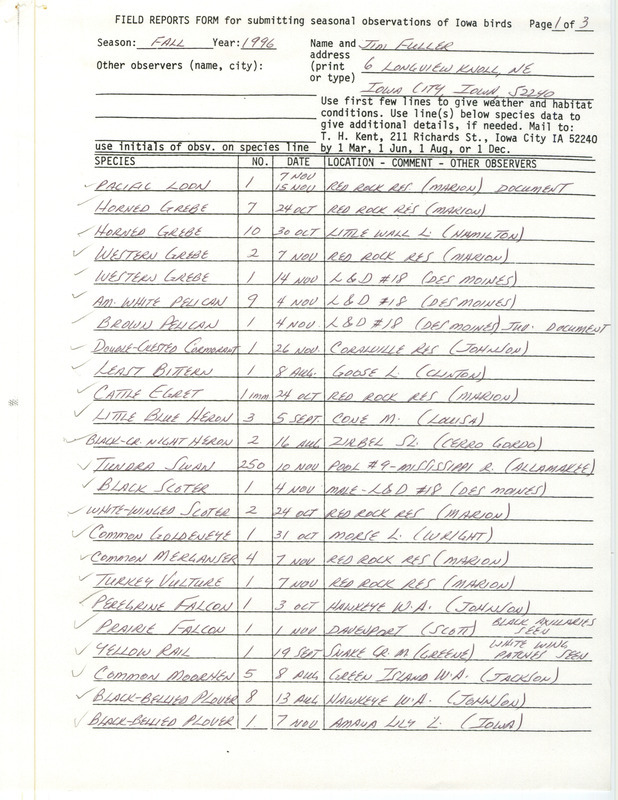 FIELD REPORTS FORM for submitting seasonal observations of Iowa birds Page 1 of 3
Season: FALL Year: 1996 Name and JIM FULLER
address
Other observers (name, city): (print 6 LONGVIEW KNOLL, NE
or type)
IOWA CITY, IOWA 52240
Use first few lines to give weather and habitat
conditions. Use line(s) below species data to
give additional details, if needed. Mail to:
T. H. Kent, 211 Richards St., Iowa City IA 52240
use initials of obsv. on species line by 1 Mar, 1 Jun, 1 Aug, or 1 Dec.
SPECIES NO. DATE LOCATION - COMMENT - OTHER OBSERVERS
7 NOV
✓ PACIFIC LOON 1 15 NOV RED ROCK RES (MARION) DOCUMENT
✓ HORNED GREBE 7 24 OCT RED ROCK RES (MARION)
✓ HORNED GREBE 10 30 OCT LITTLE WALL L. (HAMILTON)
✓ WESTERN GREBE 2 7 NOV RED ROCK RES (MARION)
✓ WESTERN GREBE 1 14 NOV L & D #18 (DES MOINES)
✓ AM. WHITE PELICAN 9 4 NOV L & D #18 (DES MOINES)
✓ BROWN PELICAN 1 4 NOV. L & D #18 (DES MOINES) JUV. DOCUMENT
✓ DOUBLE-CRESTED CORMORANT 1 26 NOV. CORALVILLE RES (JOHNSON)
✓ LEAST BITTERN 1 8 AUG. GOOSE L. (CLINTON)
✓ CATTLE EGRET 1 imm 24 OCT RED ROCK RES (MARION)
✓ LITTLE BLUE HERON 3 5 SEPT. CONE M. (LOUISA)
✓ BLACK-CR. NIGHT HERON 2 16 AUG ZIRBEL SL. (CERRO GORDO)
✓ TUNDRA SWAN 250 10 NOV POOL #9-MISSISSIPPI R. (ALLAMAKEE)
✓ BLACK SCOTER 1 4 NOV MALE - L&D #18 (DES MOINES)
✓ WHITE-WINGED SCOTER 2 24 OCT RED ROCK RES (MARION)
✓ COMMON GOLDENEYE 1 31 OCT MORSE L. (WRIGHT)
✓ COMMON MERGANSER 4 7 NOV RED ROCK RES (MARION)
✓ TURKEY VULTURE 1 7 NOV RED ROCK RES (MARION)
✓ PEREGRINE FALCON 1 3 OCT HAWKEYE W.A. (JOHNSON)
✓ PRAIRIE FALCON 1 1 NOV DAVENPORT (SCOTT) BLACK AXILLARIES SEEN
✓ YELLOW RAIL 19 SEPT SNAKE CR. M (GREENE) WHITE WING PATCHES SEEN
✓ COMMON MOORHEN 5 8 AUG GREEN ISLAND W.A. (JACKSON)
✓ BLACK-BELLIED PLOVER 8 13 AUG HAWKEYE W.A. (JOHNSON)
✓ BLACK-BELLIED PLOVER 1 7 NOV AMANA LILY L. (IOWA)